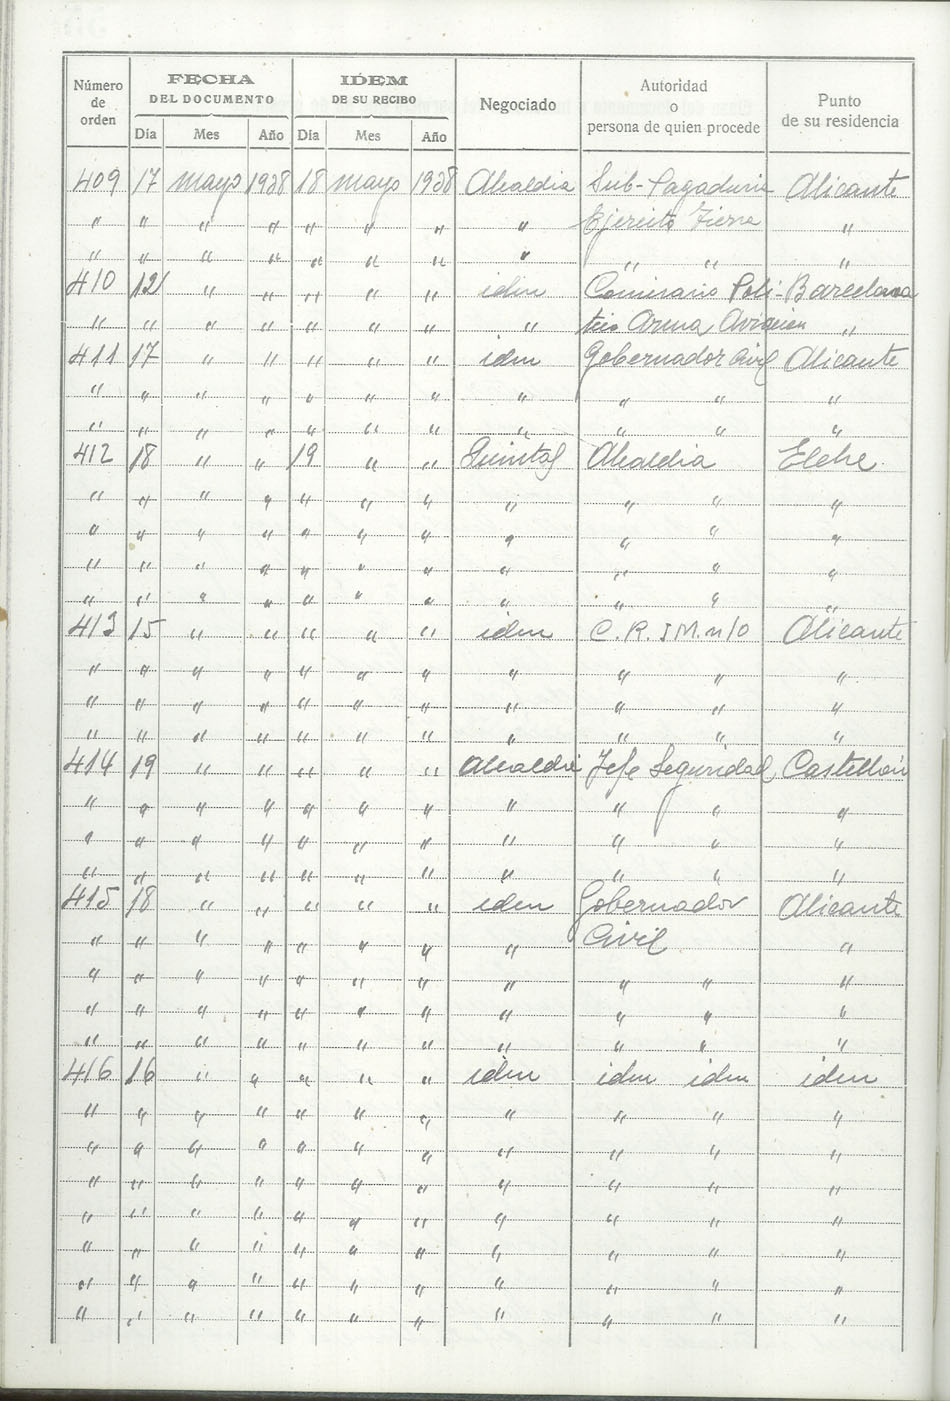 Número de orden | FECHA DEL DOCUMENTO | IDEM DE SU RECIBO | Negociado | Autoridad o persona de quien procede | Punto de su residencia
Día | Mes | Año | Día | Mes | Año
409 | 17 | mayo | 1938 | 18 | mayo | 1938 | Alcaldia | Sub-Pagaduria | Alicante
" | " | " | " | " | " | " | " | Ejercito Tierra | "
" | " | " | " | " | " | " | " | " " | "
410 | 12 | " | " | " | " | " | idem | Comisario Polí- | Barcelona
" | " | " | " | " | " | " | " | tico Arma Aviacion | "
411 | 17 | " | " | " | " | " | idem | Gobernador Civil | Alicante
" | " | " | " | " | " | " | " | " " | "
" | " | " | " | " | " | " | " | " " | "
412 | 18 | " | " | 19 | " | " | Quintas | Alcaldia | Elche
" | " | " | " | " | " | " | " | " " | "
" | " | " | " | " | " | " | " | " " | "
" | " | " | " | " | " | " | " | " " | "
" | " | " | " | " | " | " | " | " " | "
413 | 15 | " | " | " | " | " | idem | C. R. I M. nº 10 | Alicante
" | " | " | " | " | " | " | " | " " | "
" | " | " | " | " | " | " | " | " " | "
" | " | " | " | " | " | " | " | " " | "
414 | 19 | " | " | " | " | " | Alcaldia | Jefe Seguridad | Castellón
" | " | " | " | " | " | " | " | " " | "
" | " | " | " | " | " | " | " | " " | "
" | " | " | " | " | " | " | " | " " | "
415 | 18 | " | " | " | " | " | idem | Gobernador | Alicante
" | " | " | " | " | " | " | " | Civil | "
" | " | " | " | " | " | " | " | " " | "
" | " | " | " | " | " | " | " | " " | "
" | " | " | " | " | " | " | " | " " | "
416 | 16 | " | " | " | " | " | idem | idem idem | idem
" | " | " | " | " | " | " | " | " " | "
" | " | " | " | " | " | " | " | " " | "
" | " | " | " | " | " | " | " | " " | "
" | " | " | " | " | " | " | " | " " | "
" | " | " | " | " | " | " | " | " " | "
" | " | " | " | " | " | " | " | " " | "
" | " | " | " | " | " | " | " | " " | "